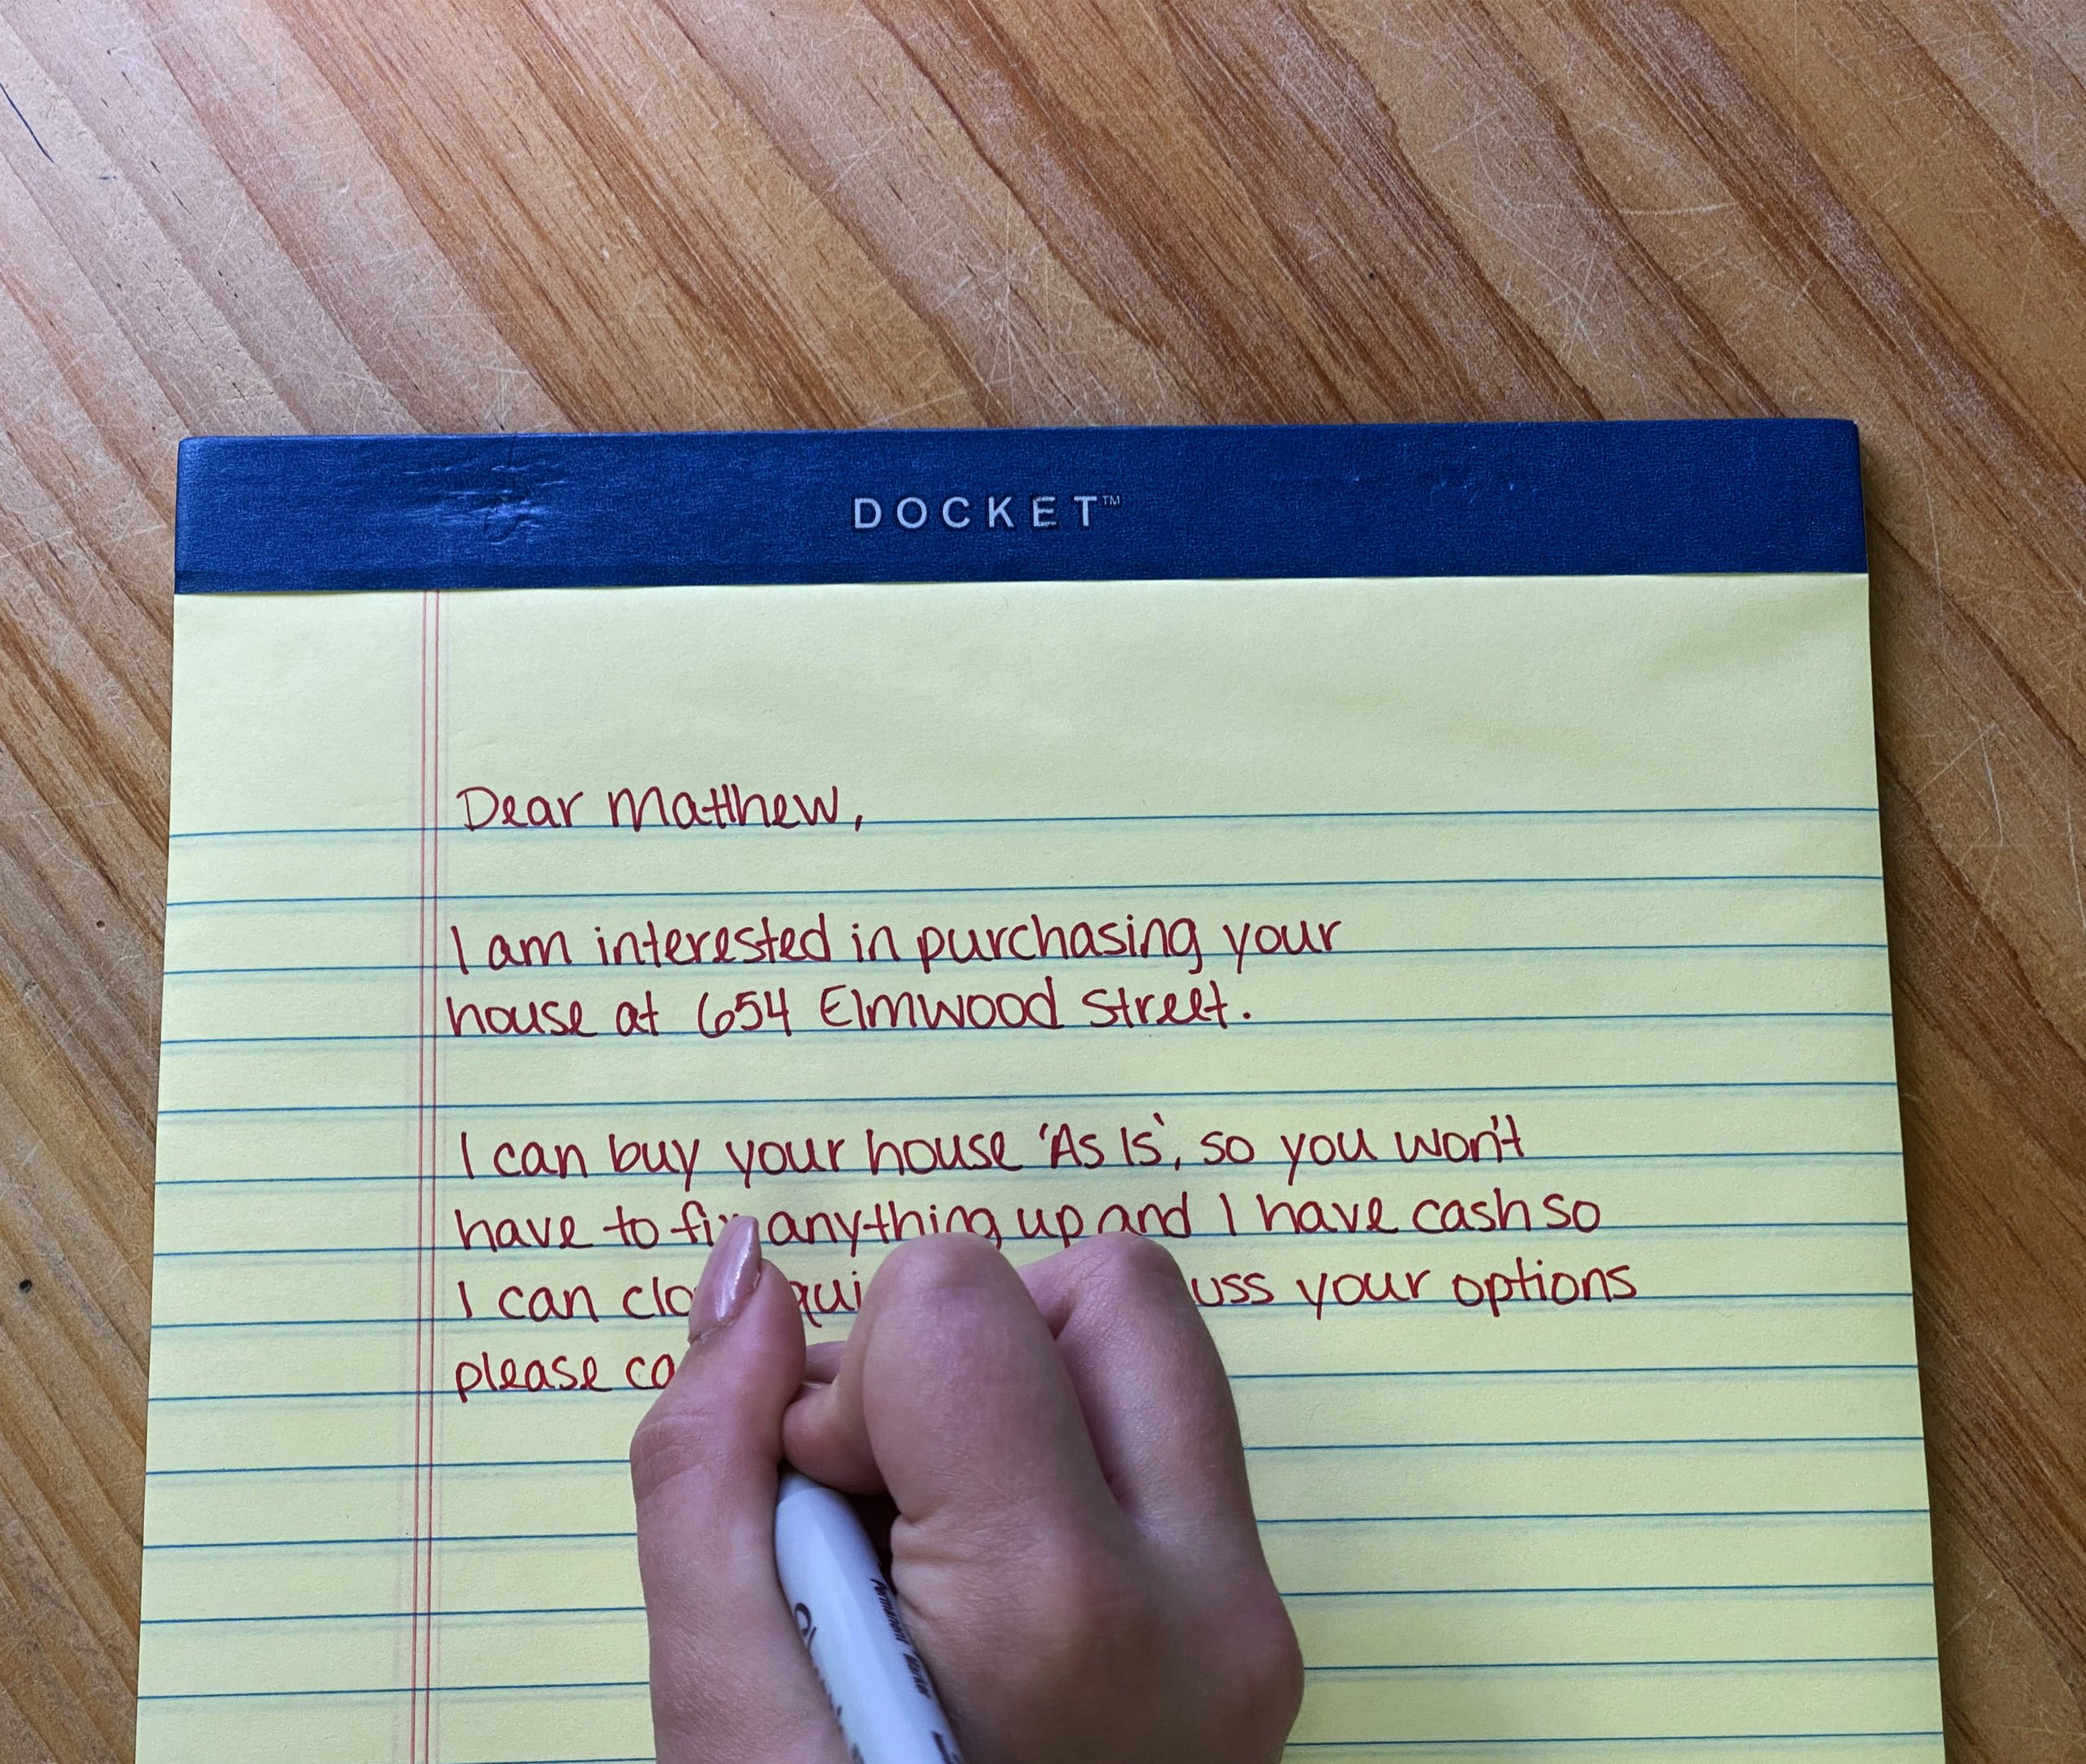 DOCKET™
Dear Matthew,
I am interested in purchasing your
house at 654 Elmwood Street.
I can buy your house 'As Is', so you won't
have to anything up and I have cash so
I can your options
please
Permanent